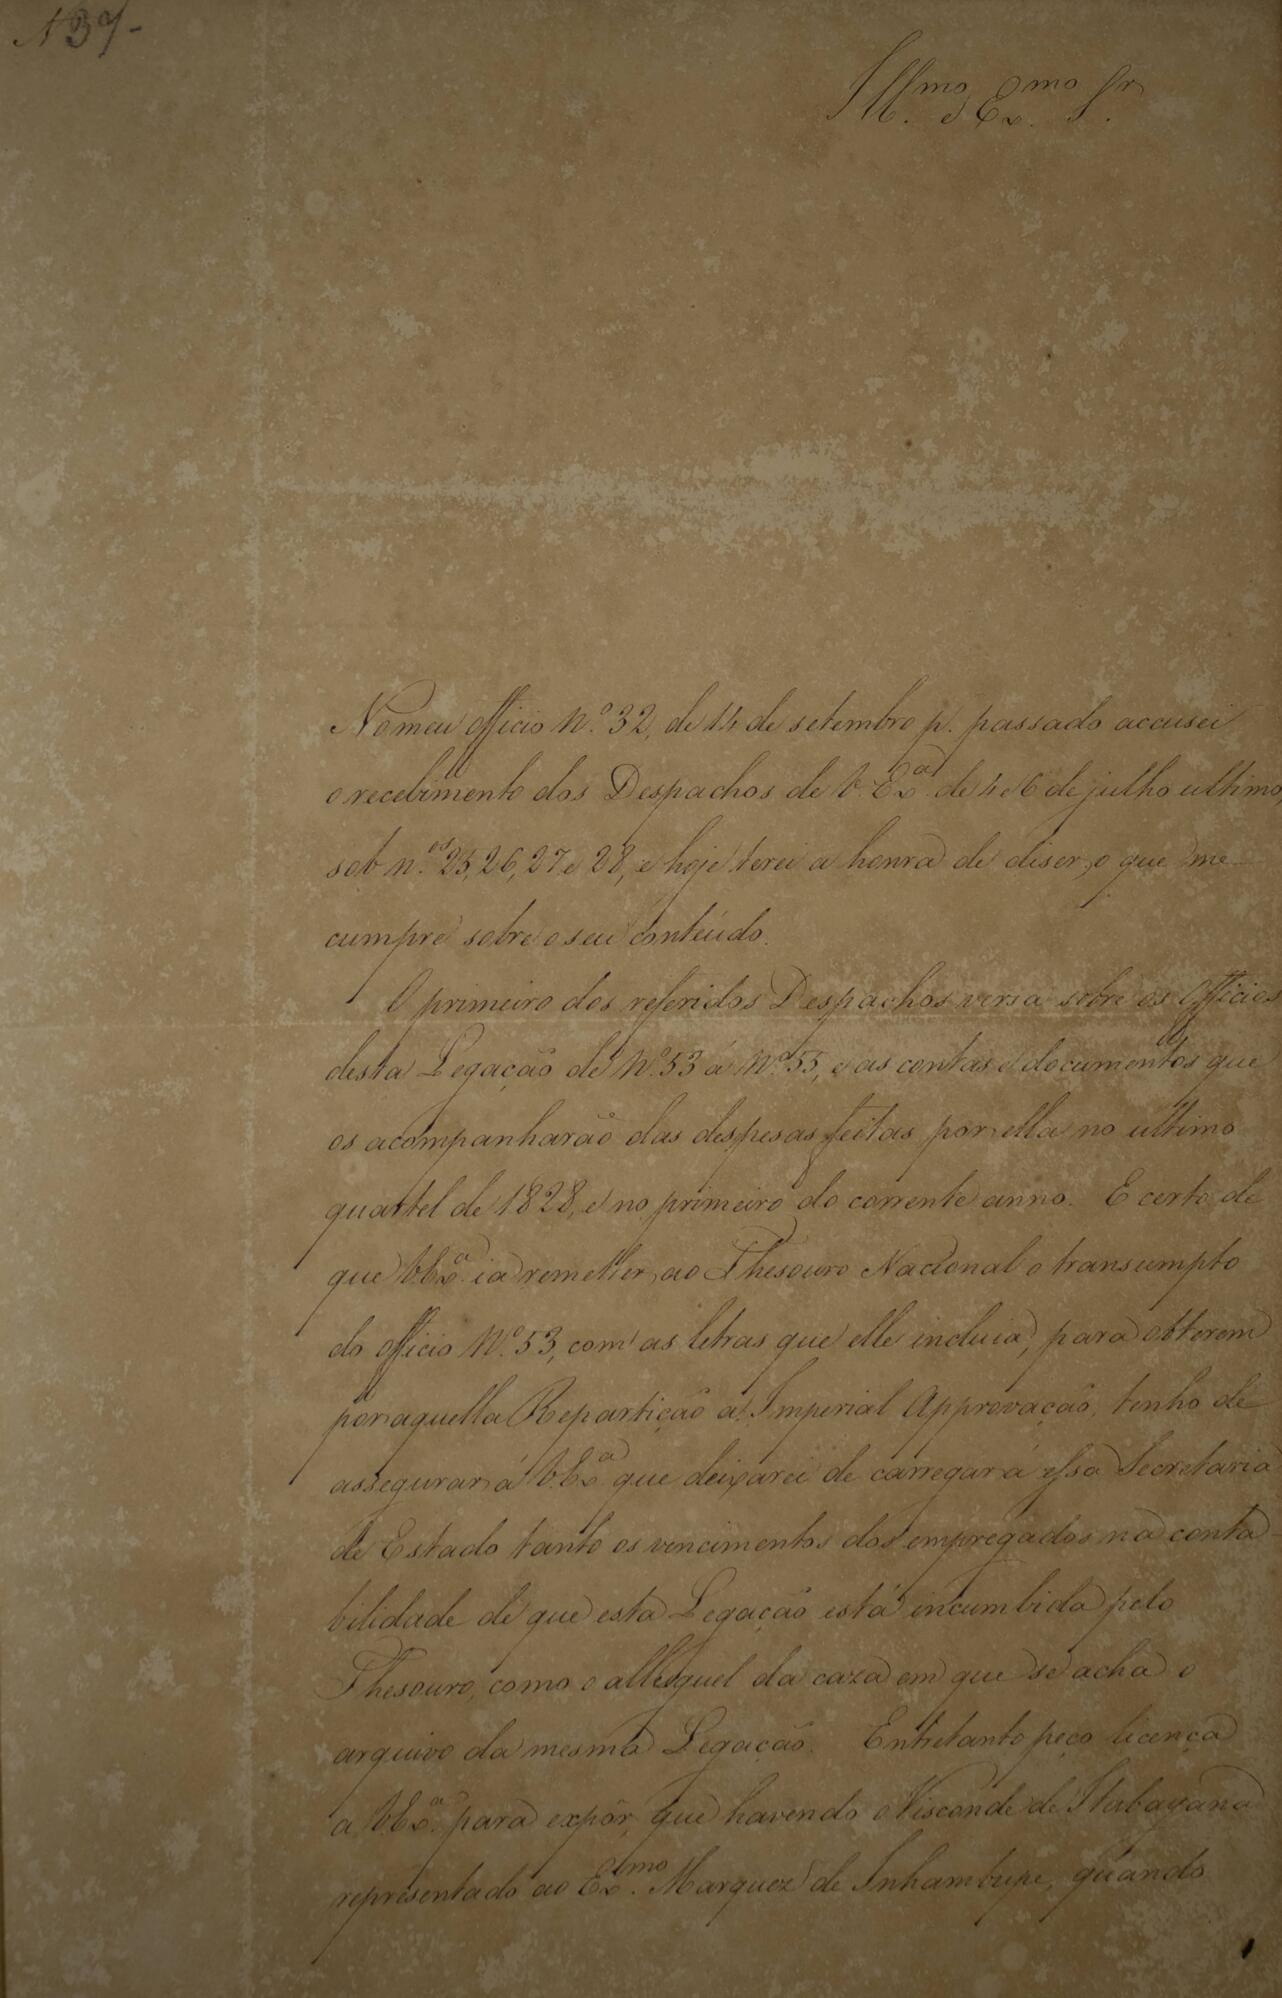 N 37-
Ill.mo e Ex.mo Sr.
No meu officio N.º 32, de 14 de setembro p. passado accusei
o recebimento dos Despachos de V. Ex.a de 4 e 6 de julho ultimo,
sob n.os 25, 26, 27 e 28, e hoje terei a honra de diser, o que me
cumpre sobre o seu contéudo.
O primeiro dos referidos Despachos versa sobre os Officios
desta Legação de N.º 53 á N.º 55, e as contas e documentos que
os acompanharão das despesas feitas por ella no ultimo
quartel de 1828, e no primeiro do corrente anno. E certo de
que V. Ex.a ia remetter ao Thesouro Nacional o transumpto
do officio N.º 53, com as letras que elle incluia, para obterem
por aquella Repartição a Imperial Approvação, tenho de
assegurar á V. Ex.a que deixarei de carregar á essa Secretaria
de Estado tanto os vencimentos dos empregados na conta-
bilidade de que esta Legação está incumbida pelo
Thesouro, como o alleiguel da caza em que se acha o
arquivo da mesma Legação. Entretanto peço licença
a V. Ex.a para expôr, que havendo o Visconde de Itabayana
representado ao Ex.mo Marquez de Inhambupe, quando